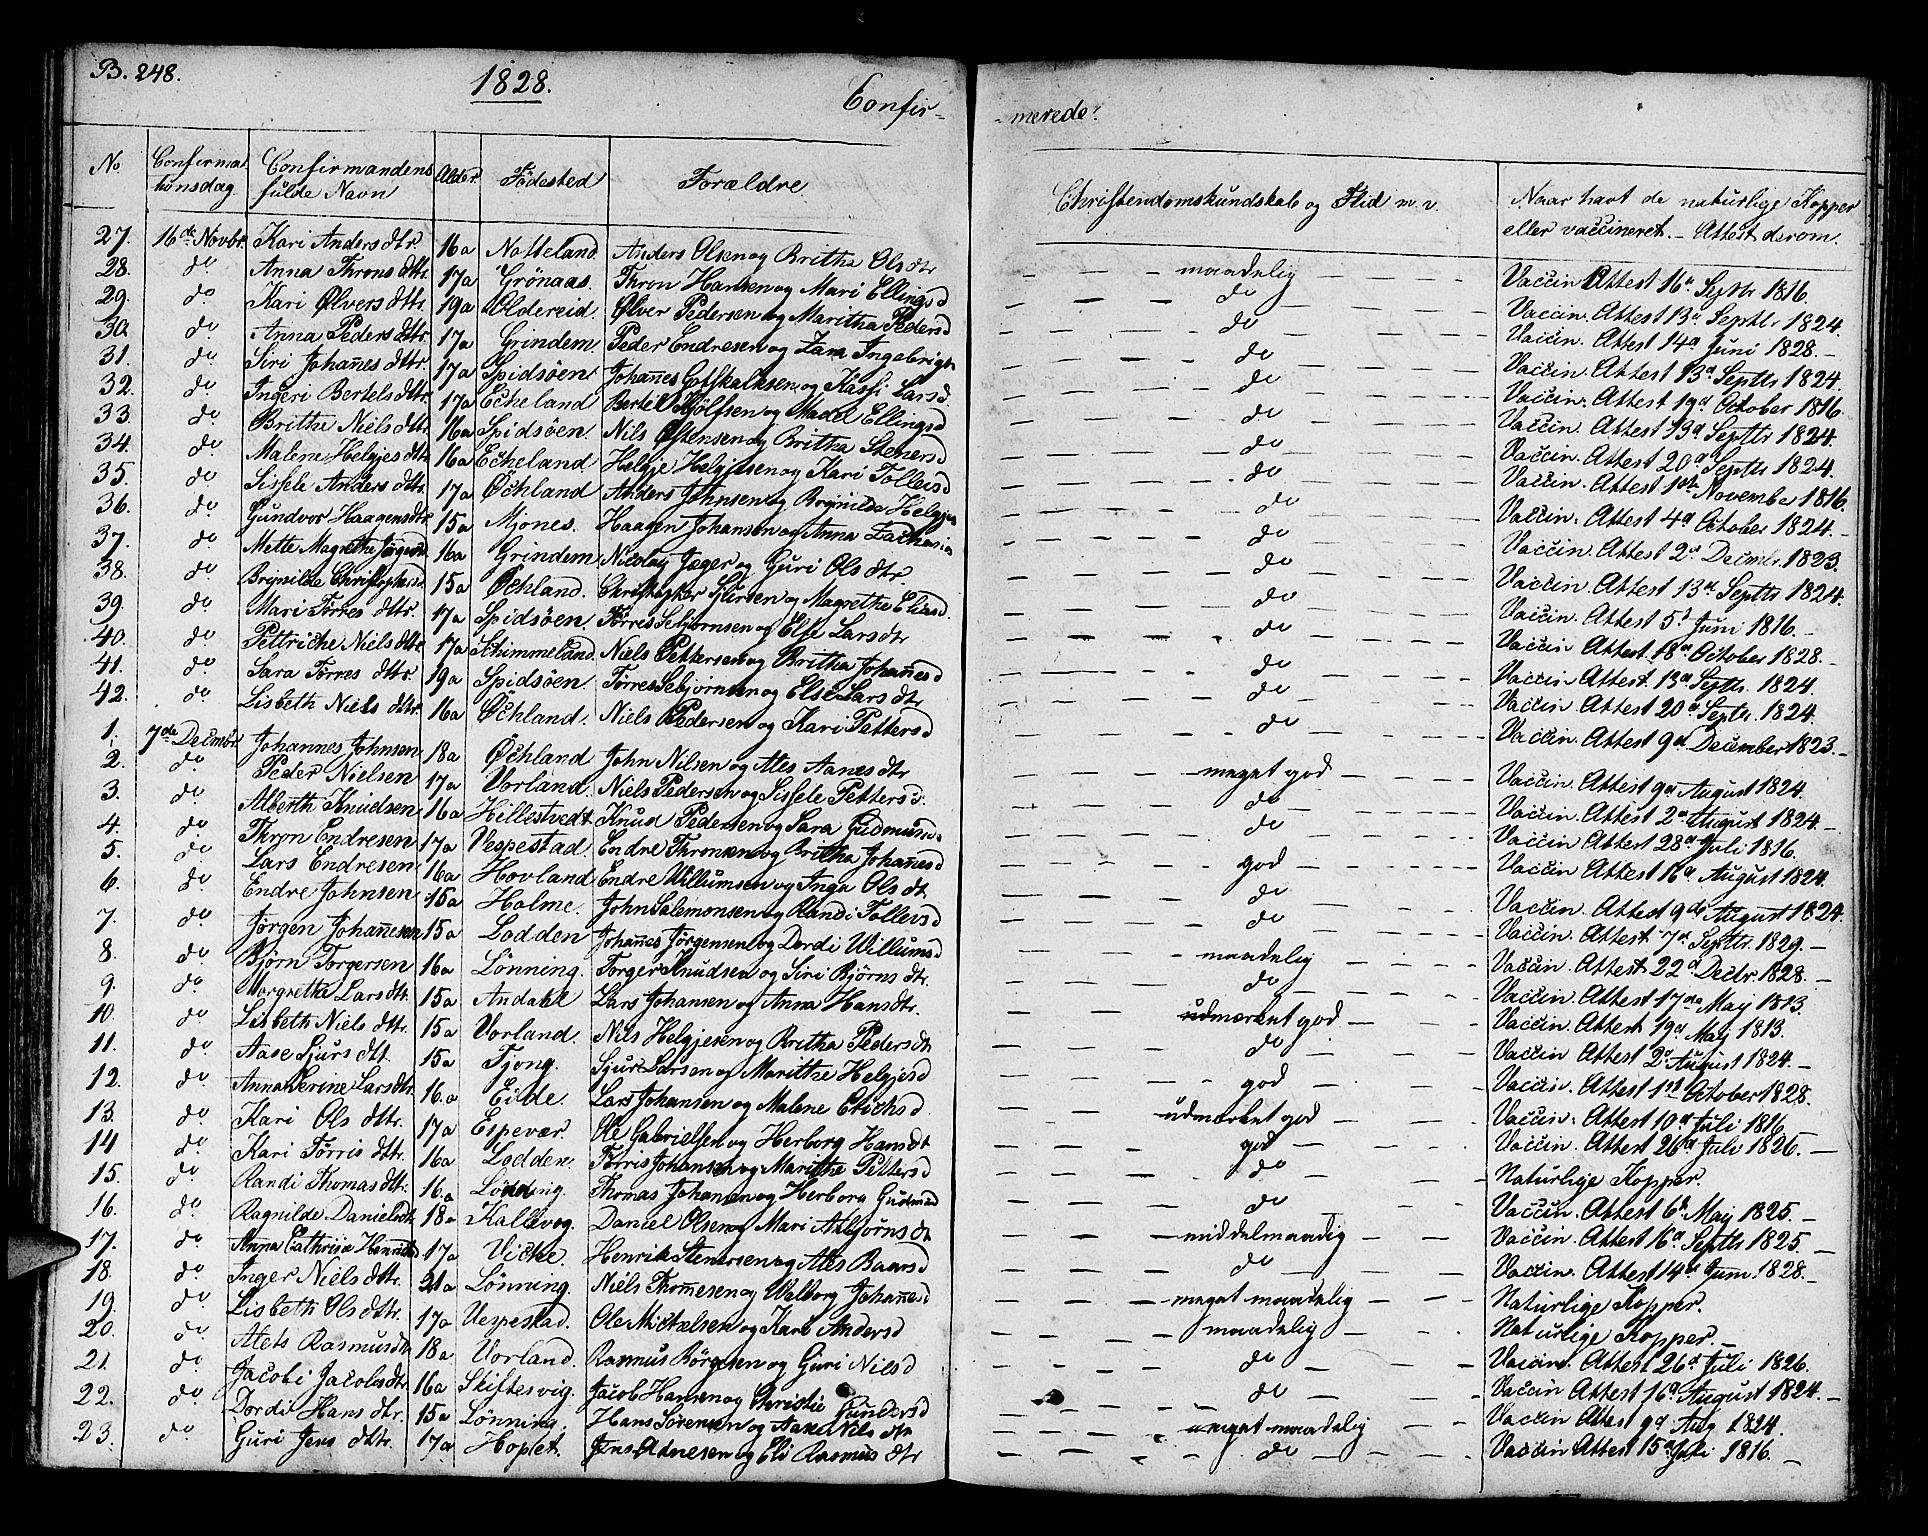 B. 248.
1828.
Confir-
-merede.
No. Confirma- Confirmandens Alder. Födested Forældre Christendomskundskab og Flid m.v. Naar havt de naturlige Kopper
tionsdag fulde Navn eller vaccineret. - Attest derom.
27. 16de Novbr. Kari Anders dtr. 16a Notteland Anders Olsen og Britha Ols dtr — — — maadelig — — — Vaccin Attest 16a Septbr 1816.
28. do Anna Throns dtr 17a Grönaas. Thron Hansen og Mari Ellings d — — — do — — — Vaccin. Attest 13a Septbr 1824.
29. do Kari Ølvers dtr. 19a Oldereid. Ølver Pedersen og Maritha Peders d — — — do — — — Vaccin. Attest 14a Juni 1828. —
30. do Anna Peders dtr. 17a Grindem. Peder Endresen og Zara Ingebrigts — — — do — — — Vaccin. Attest 13a Septbr 1824.
31. do Siri Johanes dtr. 17a Spidsöen Johanes Gotskalksen og Lars d. — — — do — — — Vaccin. Attest 19d October 1816.
32. do Ingeri Bertels dtr. 17a Echeland Bertel og Madel Ellings d — — — do — — — Vaccin. Attest 13a Septbr 1824.
33. do Britha Niels dtr. 16a Spidsöen. Nils Østensen og Britha Steners d — — — do — — — Vaccin. Attest 20a Septbr 1824.
34. do Malene Helgjes dtr 16a Echeland Helgje Helgjesen og Kari Tolleis d — — — do — — — Vaccin. Attest 1ste November 1816.
35. do Sissele Anders dtr 17a Öchland Anders Johnsen og Brynilda Helgjes — — — do — — — Vaccin. Attest 4d October 1824. —
36. do Gundvor Haagens dtr. 15a Mjones. Haagen Johansen og Anna Zacharia — — — do — — — Vaccin. Attest 2d Decmbr. 1823.
37. do Mette Magretha 16a Grindem Nicolay Jæger og Guri Ols dtr — — — do — — — Vaccin. Attest 13a Septbr 1824.
38. do Brynilde 15a Öchland. Christopher Sjursen og Magretha — — — do — — — Vaccin. Attest 5d Juni 1816. —
39. do Mari Törres dtr. 17a Spidsöen Törres Sebjörnsen og Else Lars dtr — — — do — — — Vaccin. Attest 18a October 1828. —
40. do Pettriche Niels dtr 17a Schimmeland. Niels Pettersen og Britha Johanes d — — — do — — — Vaccin. Attest. 13a Septbr. 1824.
41. do Sara Törres dtr. 19a Spidsöen. Törres Sebjörnsen og Else Lars dtr — — — do — — — Vaccin. Attest 20a Septbr. 1824.
42. do Lisbeth Niels dtr. 16a Öchland. Niels Pedersen og Kari Petters d — — — do — — — Vaccin. Attest 9d December 1823. —
1. 7de Decmbr. Johannes Johnsen 18a Öchland John Nilsen og Ales Aanes dtr — — — meget god — — — Vaccin. Attest 9d August 1824.
2. do Peder Nielsen 17a Vorland. Niels Pedersen og Sissele Petters d. — — — do — — — Vaccin. Attest 2a August 1824. —
3. do Alberth Knudsen 16a Hillestvedt Knud Pedersen og Sara Gudmuns — — — do — — — Vaccin Attest 28d Juli 1816.
4. do Thron Endresen 17a Vespestad. Endre Thronsen og Britha Johanes d — — — god — — — Vaccin. Attest 16a August 1824.
5. do Lars Endresen 16a Hovland Endre Willumsen og Inga Ols dt. — — — do — — — Vaccin. Attest 9de August 1824.
6. do Endre Johnsen 15a Holme. John Salemonsen og Randi Tollevs d — — — do — — — Vaccin. Attest 7d Septbr. 1829. —
7. do Jörgen Johanesen 15a Lodden Johanes Jörgensen og Dordi Willums d — — — maadelig — — — Vaccin. Attest 22d Decbr. 1828. —
8. do Björn Torgersen 16a Lönning. Torger Knudsen og Siri Björns dt. — — — do — — — Vaccin. Attest 17de May 1813.
9. do Margretha Lars dtr. 15a Andahl Lars Johansen og Anna Hans dtr. — — — udmerket god — — — Vaccin. Attest 19d Maj 1813.
10. do Lisbeth Niels dtr. 15a Vorland. Nils Helgjesen og Britha Peders dt — — — do — — — Vaccin Attest 2d August 1824. —
11. do Aase Sjurs dtr. 15a Tjong. Sjur Larsen og Marithe Helgjes d — — — god — — — Vaccin. Attest 1st October 1828.
12. do Anna Serine Lars dtr 16.a Eide. Lars Johansen og Malene Erichs d. — — — udmerket god — — — Vaccin. Attest 10d Juli 1816.
13. do Kari Ols dtr. 17a Espevær. Ole Gabrielsen og Herborg Hans dt — — — god — — — Vaccin. Attest 26d Juli 1826. —
14 do Kari Törris dtr. 16a Lodden. Törris Johansen og Marithe Pitters d — — — do — — — Naturlige Kopper.
15. do Randi Thomas dtr. 16.a Lönning. Thomas Johansen og Herborg Gudm d — — — do — — — Vaccin. Attest 6te Maj 1825. —
16. do Ragnilde Daniels dtr 18a Kallevog. Daniel Olsen og Mari Asbjörns dt — — — middelmaadig — — — Vaccin. Attest 16a Septbr 1825. —
17. do Anna Cathrine 17a Viche. Henrik Stenersen og Ales Baars d — — — do — — — Vaccin. Attest 14de Juni. 1828. —
18. do Inger Niels dtr. 21a Lönning. Niels Thomesen og Walborg Johanes d — — — meget maadelig — — — Naturlige Kopper.
19. do Lisbeth Ols dtr. 17a Vespestad. Ole Mickelsen og Kari Anders d — — — maadelig — — — Naturlige Kopper. —
20. do Alets Rasmus dt 18a Vorland. Rasmus Börgesen og Guri Nils d — — — do — — — Vaccin. Attest 26d Juli 1826.
21. do Jacobi Jacobs dtr 16a Skiftesvig. Jacob Hansen og Christie Gunders d — — — do — — — Vaccin Attest 16d August 1824. —
22. do Dordi Hans dtr. 15a Lönning. Hans Sörensen og Aase Nils dtr — — — meget maadelig — — — Vaccin Attest 9d Aug 1824.
23. do Guri Jens dtr. 17a Hoplet. Jens Adnesen og Eli Rasmus dtr — — — do — — — Vaccin Attest 15d Juli 1816. —